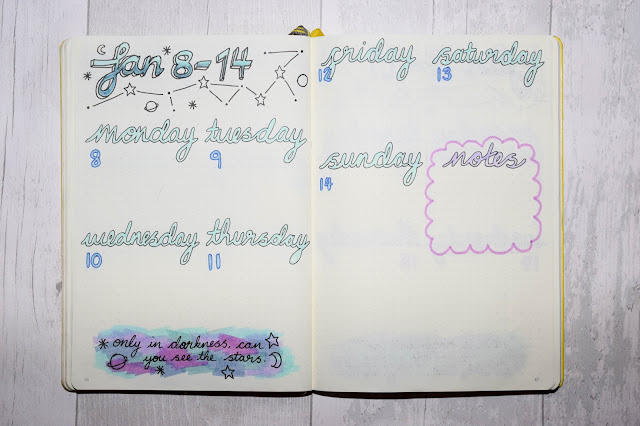 Jan 8-14
monday tuesday
8 9
wednesday thursday
10 11
only in darkness, can
you see the stars.
friday saturday
12 13
sunday notes
14